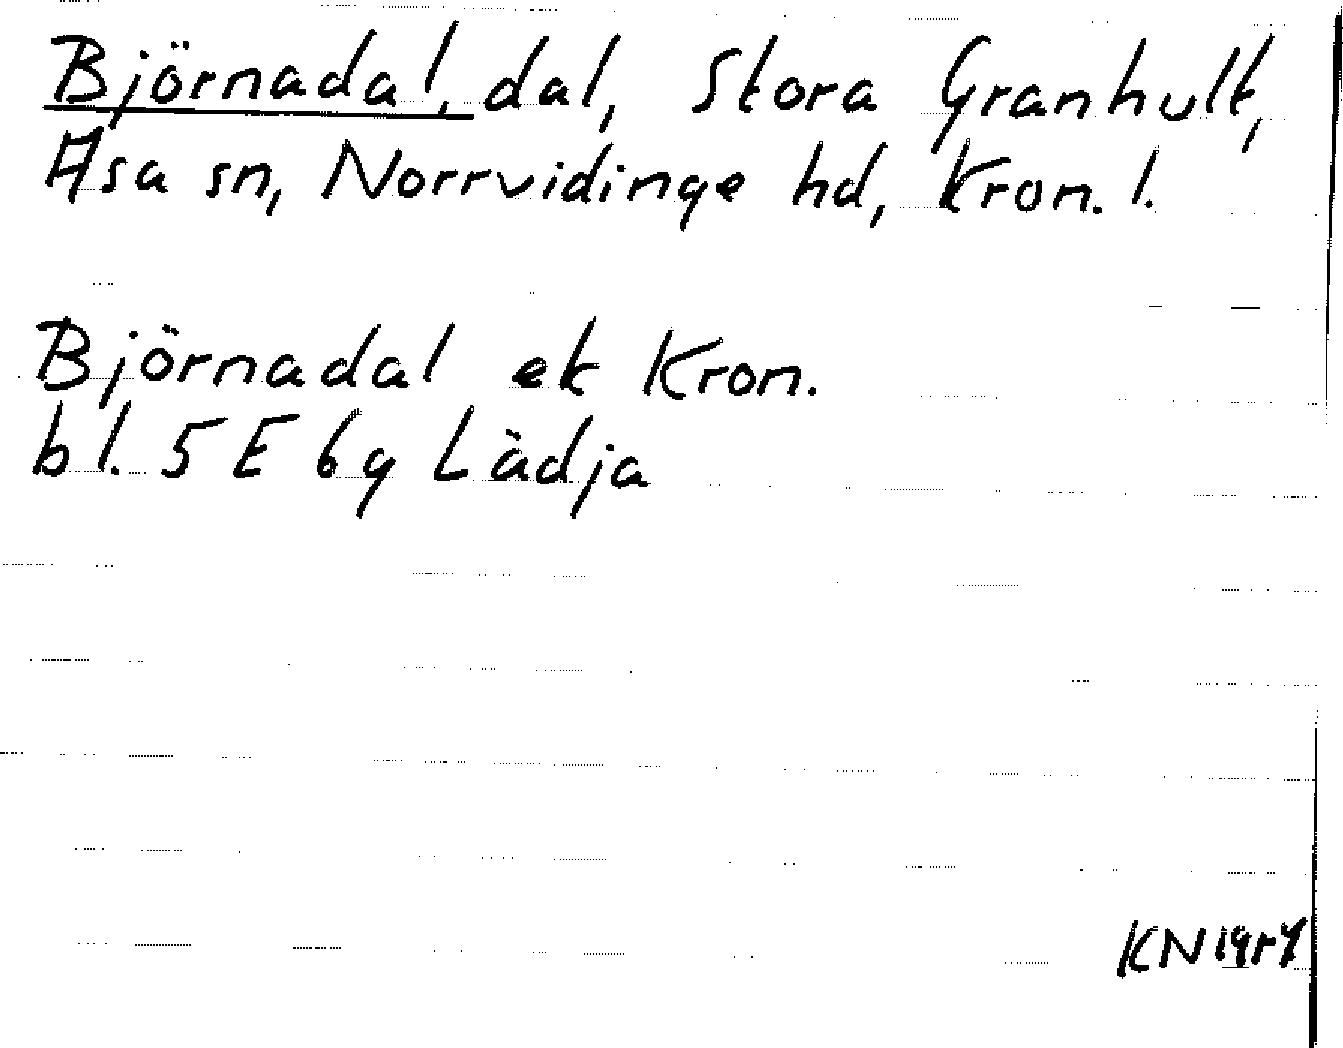 Björnadal, dal, Stora Granhult,
Asa sn, Norrvidinge hd, Kron. l.
Björnadal ek Kron.
bl. 5 E 6g Lädja